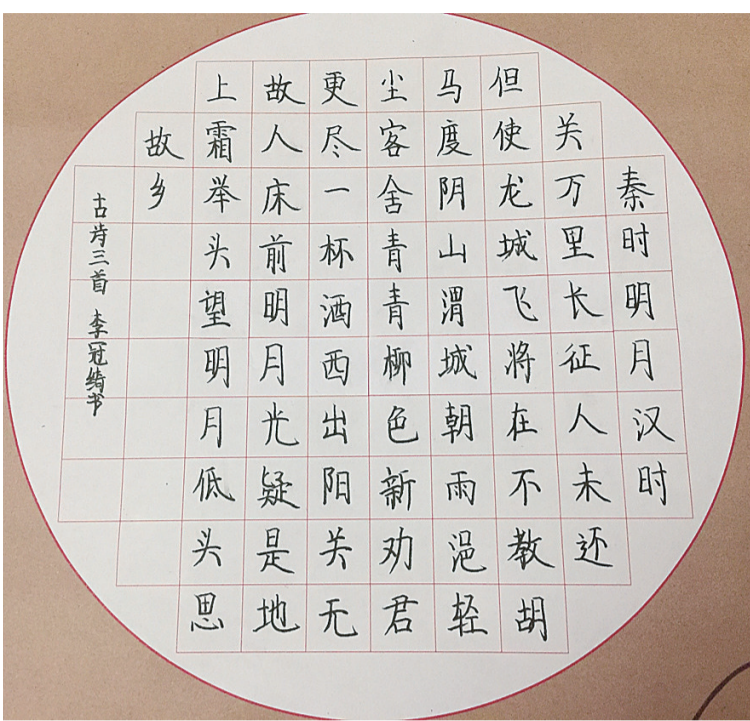 秦时明月汉时
关万里长征人未还
但使龙城飞将在不教胡
马度阴山渭城朝雨浥轻
尘客舍青青柳色新劝君
更尽一杯酒西出阳关无
故人床前明月光疑是地
上霜举头望明月低头思
故乡
古诗三首 李冠绮书